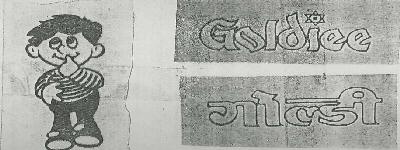 Goldiee
गोल्डी